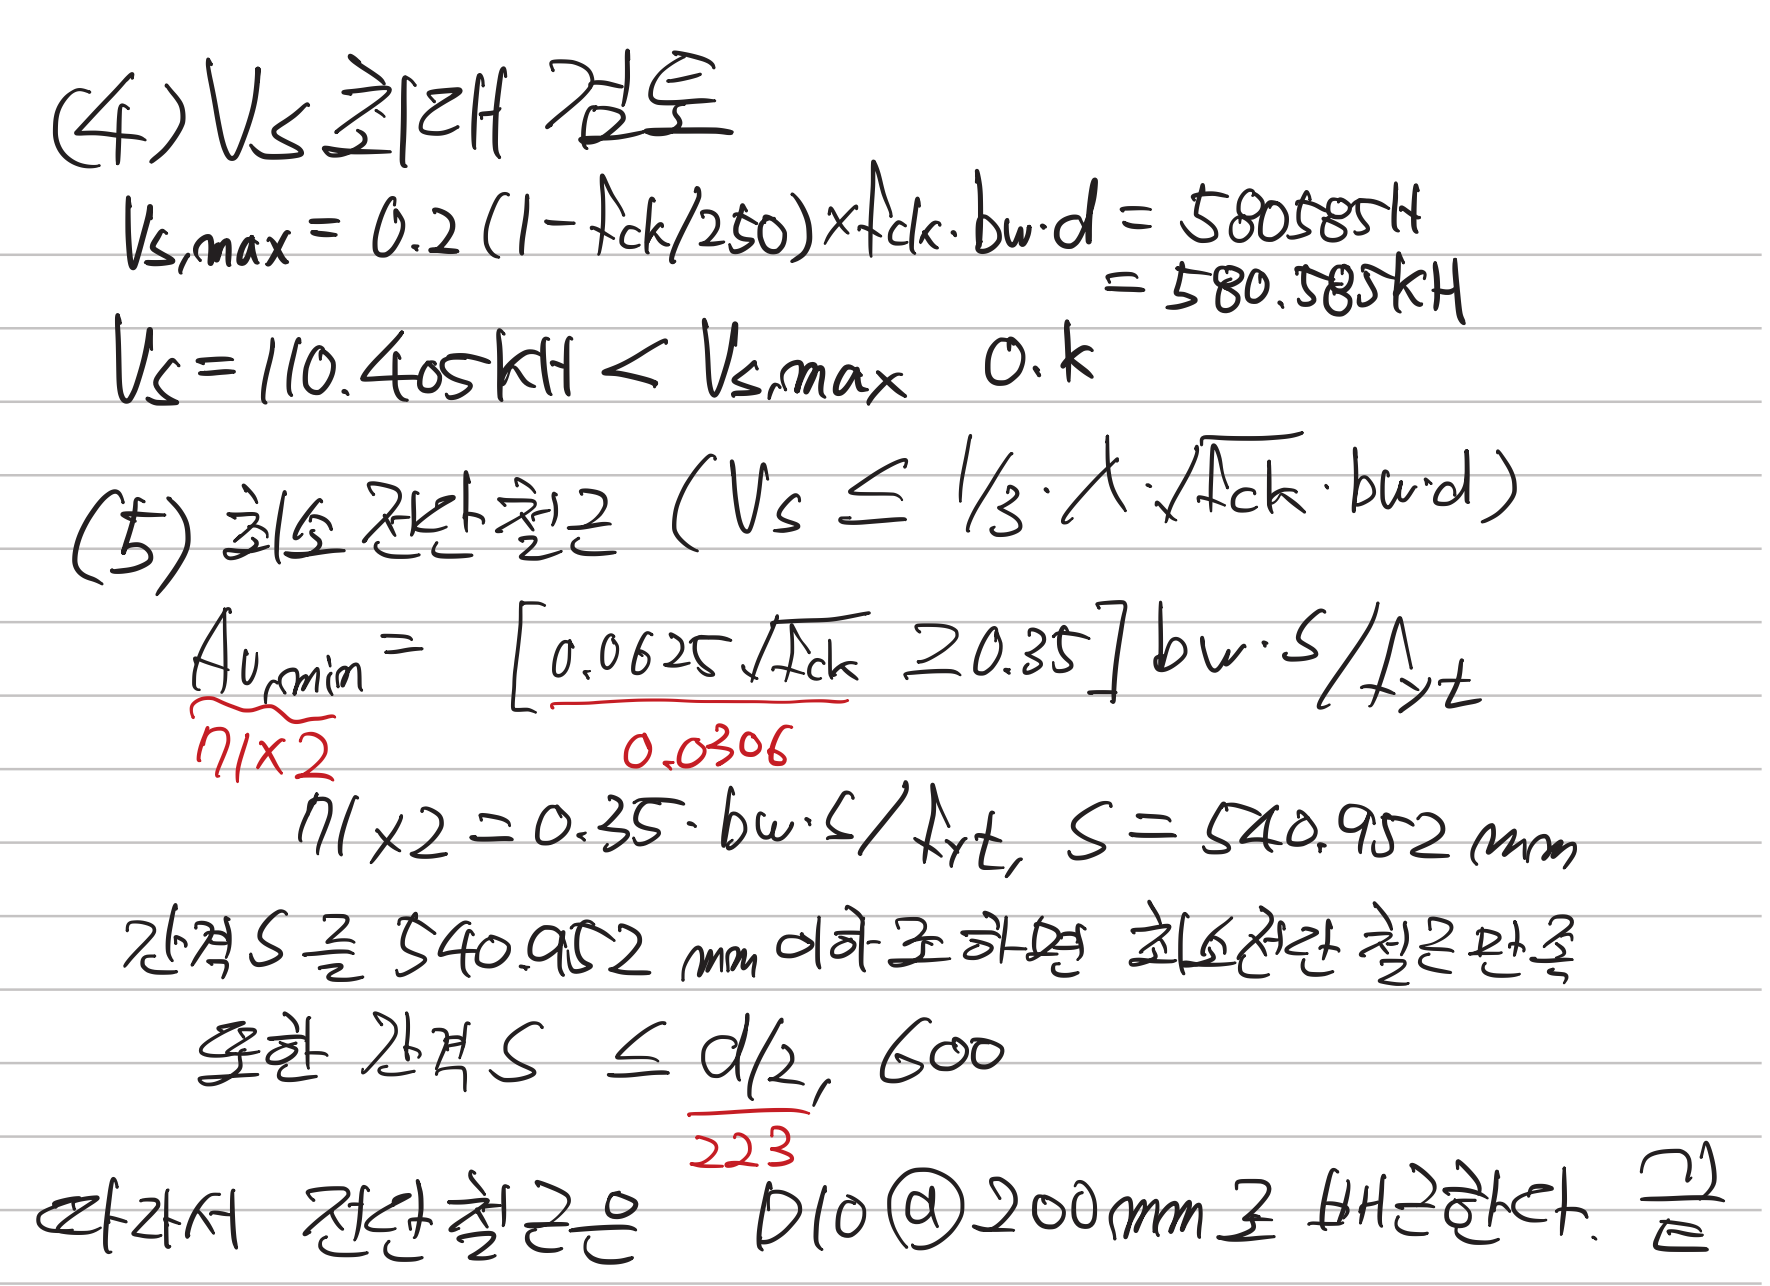 (4) Vs 최대 검토
Vs,max = 0.2 (1-fck/250)×fck·bw·d = 580585N
= 580.585kN
Vs = 110.405kN < Vs,max O.k
(5) 최소 전단철근 (Vs ≤ 1/3·λ·√fck·bw·d)
Av,min = [0.0625√fck ≥ 0.35] bw·s/fyt
71×2 0.0306
71×2 = 0.35·bw·s/fyt, s = 540.952 mm
간격 s를 540.952 mm 이하로 하면 최소전단철근 만족
또한 간격 s ≤ d/2, 600
223
따라서 전단철근은 D10@200mm로 배근한다. 끝